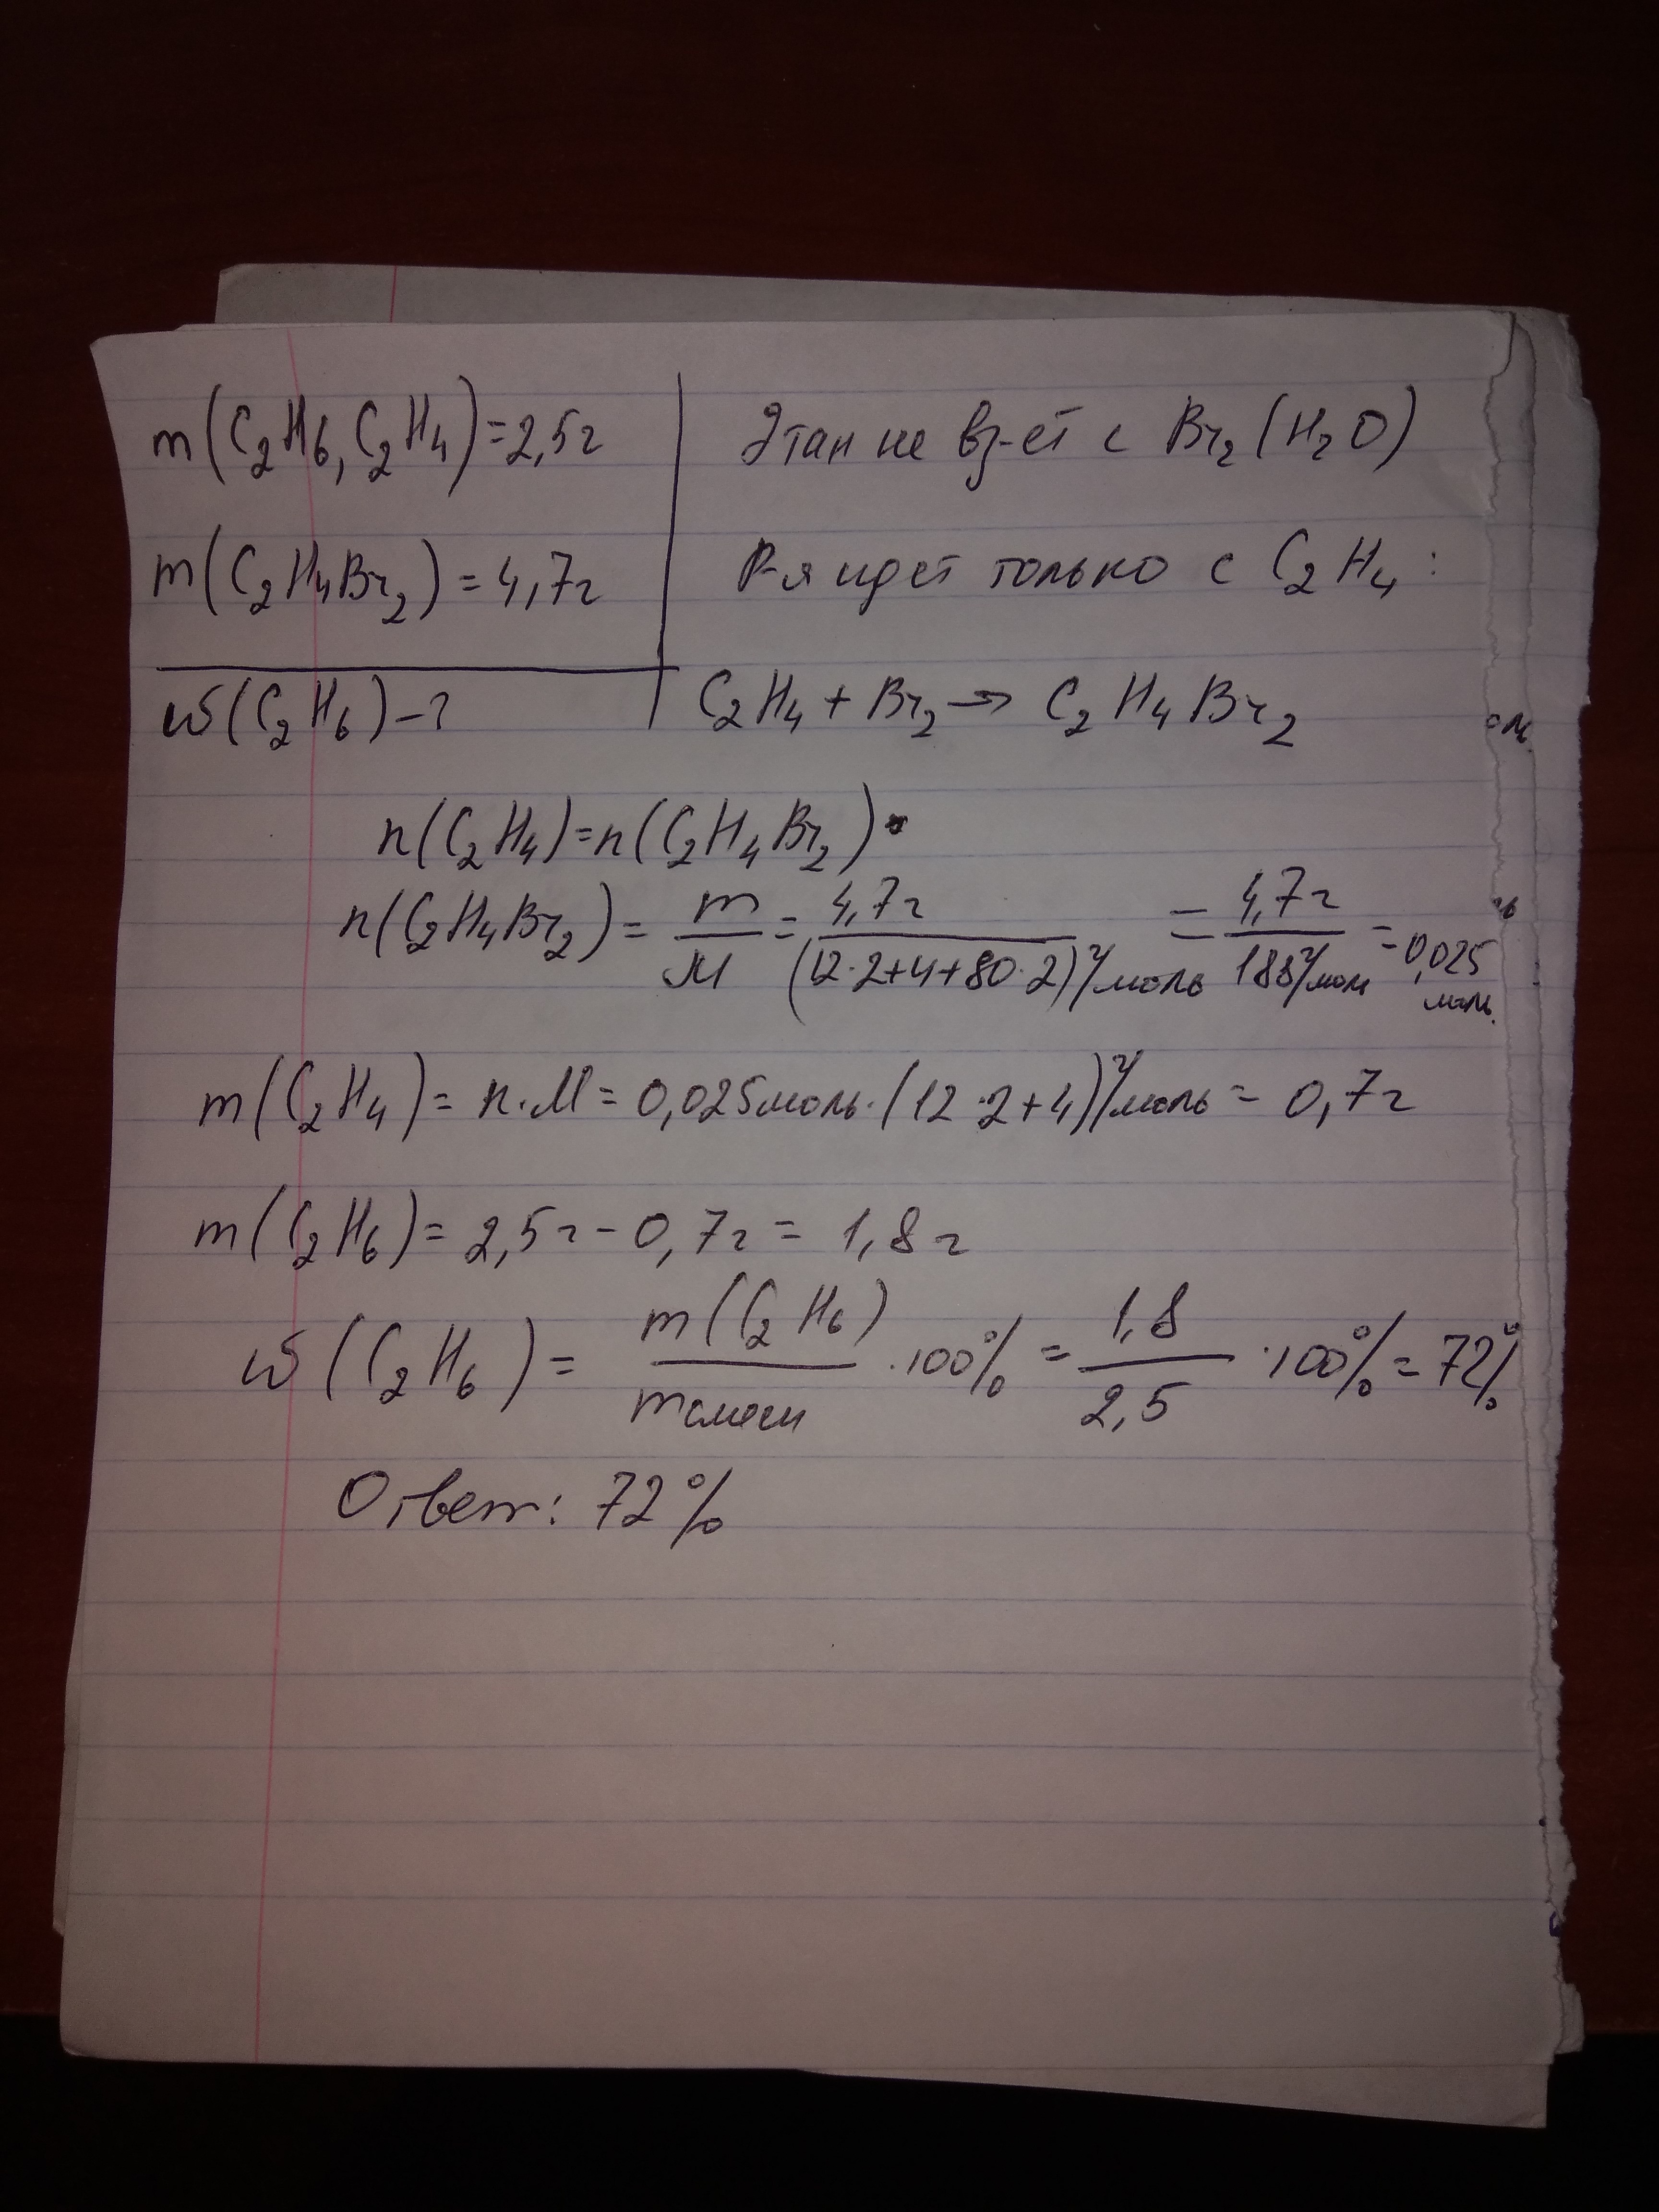 m(C₂H₆, C₂H₄)=2,5г
m(C₂H₄Br₂)=4,7г
ω(C₂H₆)-?
Этан не вз-ет с Br₂(H₂O)
Р-я идет только с C₂H₄:
C₂H₄+Br₂→C₂H₄Br₂
n(C₂H₄)=n(C₂H₄Br₂)
n(C₂H₄Br₂)= m/M = 4,7г/(12·2+4+80·2)г/моль = 4,7г/188г/мол = 0,025 моль.
m(C₂H₄)= n·M= 0,025моль·(12·2+4)г/моль= 0,7г
m(C₂H₆)= 2,5г-0,7г= 1,8г
ω(C₂H₆)= m(C₂H₆)/mсмеси ·100%= 1,8/2,5 ·100%=72%
Ответ: 72%